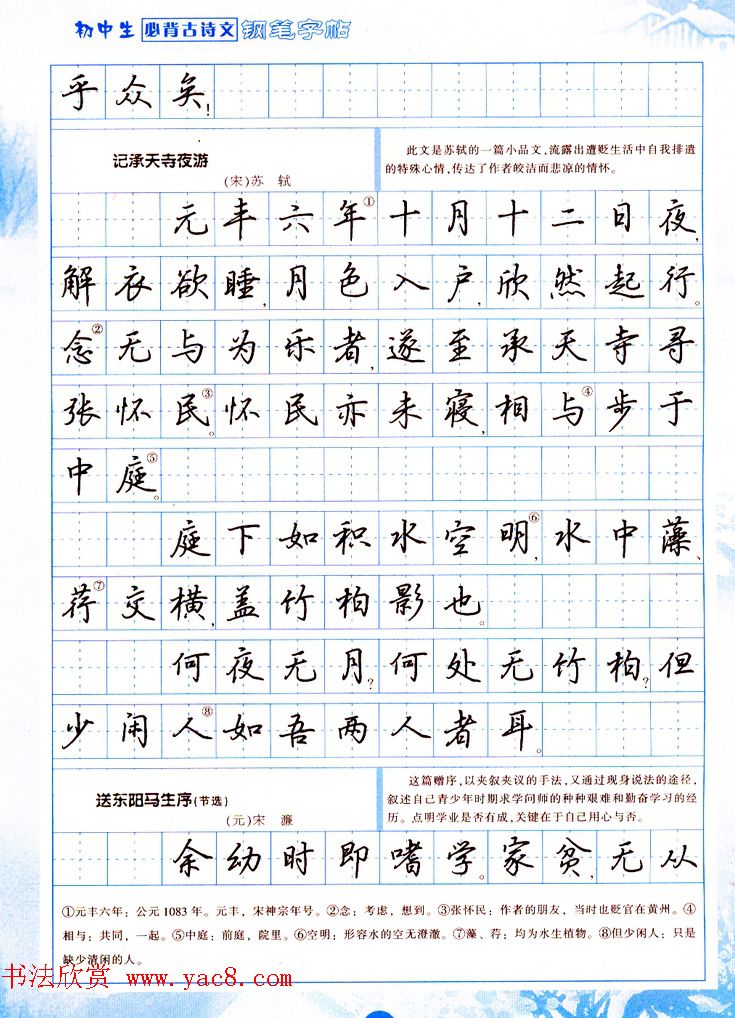 初中生 必背古诗文 钢笔字帖
乎众矣!
记承天寺夜游
(宋)苏 轼
此文是苏轼的一篇小品文,流露出遭贬生活中自我排遣
的特殊心情,传达了作者皎洁而悲凉的情怀。
元丰六年①十月十二日夜,
解衣欲睡,月色入户,欣然起行。
念②无与为乐者,遂至承天寺寻
张怀民③。怀民亦未寝,相与④步于
中庭⑤。
庭下如积水空明⑥,水中藻、
荇⑦交横,盖竹柏影也。
何夜无月?何处无竹柏?但
少闲人⑧如吾两人者耳。
送东阳马生序(节选)
(元)宋 濂
这篇赠序,以夹叙夹议的手法,又通过现身说法的途径,
叙述自己青少年时期求学问师的种种艰难和勤奋学习的经
历。点明学业是否有成,关键在于自己用心与否。
余幼时即嗜学。家贫,无从
①元丰六年:公元1083年。元丰,宋神宗年号。②念:考虑,想到。③张怀民:作者的朋友,当时也贬官在黄州。④
相与:共同,一起。⑤中庭:前庭,院里。⑥空明:形容水的空无澄澈。⑦藻、荇:均为水生植物。⑧但少闲人:只是
缺少清闲的人。
书法欣赏 www.yac8.com